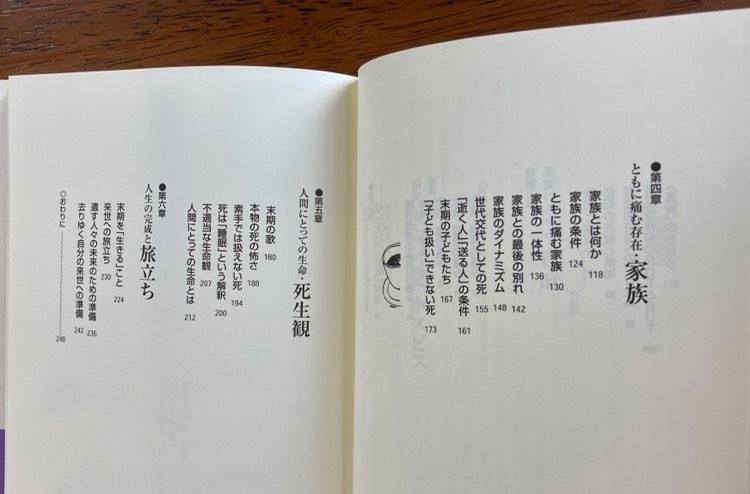 ●第四章
ともに痛む存在・家族
家族とは何か 118
家族の条件 124
ともに痛む家族 130
家族の一体性 136
家族との最後の別れ 142
家族のダイナミズム 148
世代交代としての死 155
「逝く人」「送る人」の条件 161
末期の子どもたち 167
「子ども扱い」できない死 173
●第五章
人間にとっての生命・死生観
末期の歌 180
本物の死の怖さ 188
素手では扱えない死 194
死は「睡眠」という解釈 200
不適当な生命観 207
人間にとっての生命とは 212
●第六章
人生の完成と旅立ち
末期を「生きる」こと 224
来世への旅立ち 230
遺す人々の未来のための準備 236
去りゆく自分の来世への準備 242
◎おわりに……………… 248